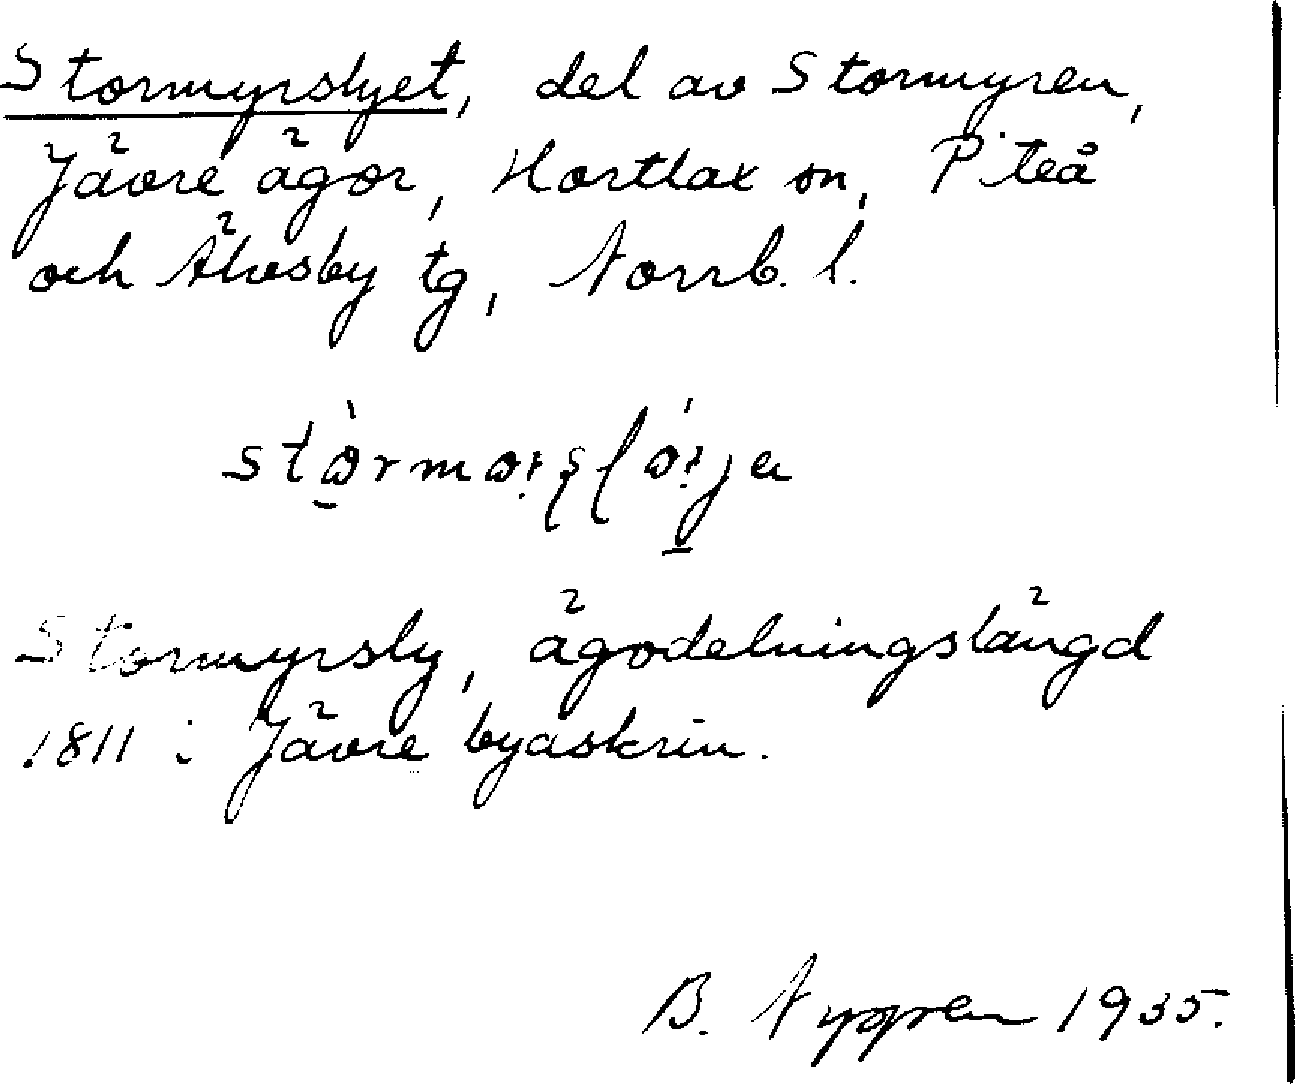 Stormyrslyet, del av Stormyren,
Jävre ägor, Hortlax sn, Piteå
och Älvsby tg, Norrb. l.
Stormyrsly, ägodelningslängd
1811 i Jävre byaskrin.
B. Nygren 1935.